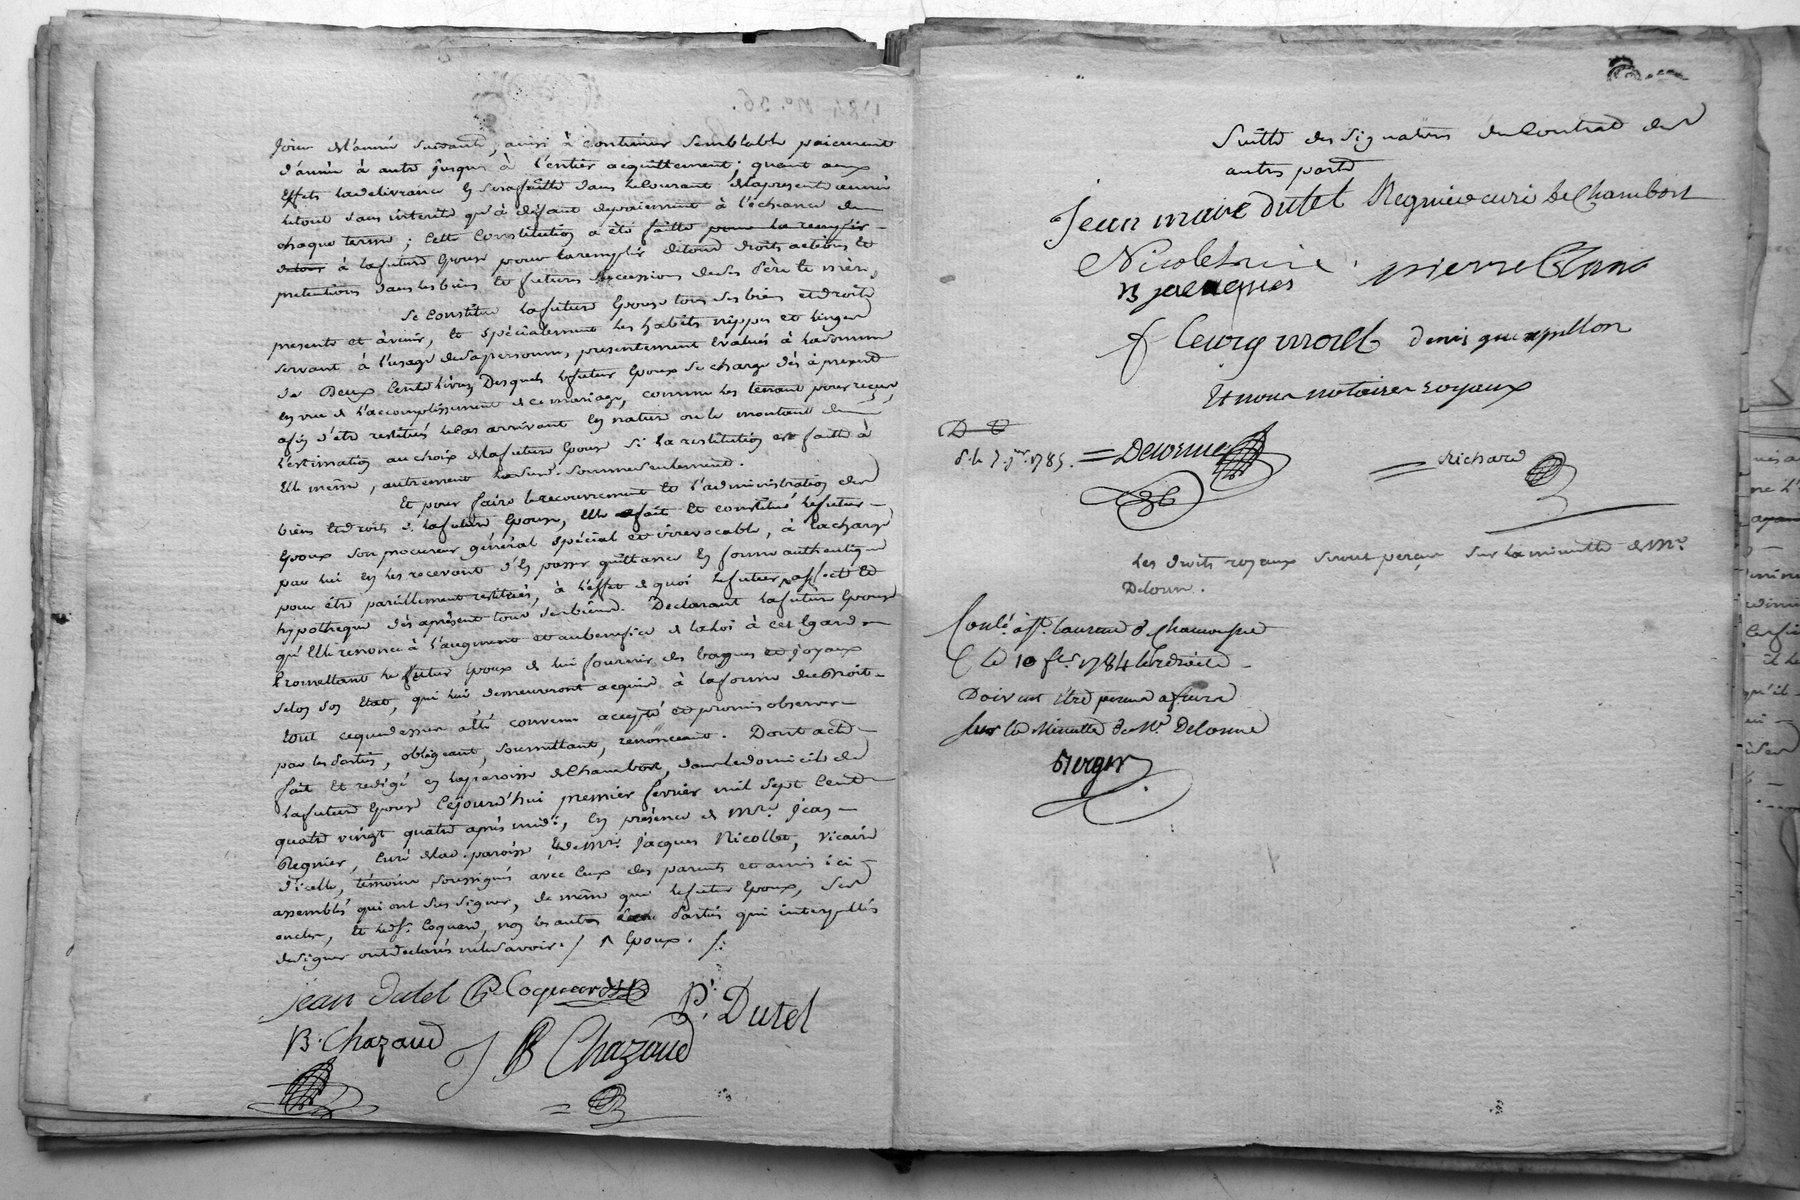 jour de l'année suivante, ainsi à continuer semblable paiement
d'année à autre jusques à l'entier acquittement; quant aux
effets la delivrance en sera faitte dans le courant de la presente année
le tout sans interets qu'à défaut de paiement à l'échéance de
chaque terme; cette constitution a été faitte pour la remplir
de tous à la future Epouse pour la remplir de tous droits actions et
pretentions dans les biens et futures successions de ses Père et mère,
Se constitue la future Epouse tous ses biens et droits
presents et à venir, et spécialement ses habits nippes et linges
servant à l'usage de sa personne, presentement évalués à la somme
de Deux Cents livres, Desquels le futur Epoux se charge dès à present
en vue de l'accomplissement de ce mariage, comme les tenant pour reçus,
afin d'etre restitués le cas arrivant en nature ou le montant de
l'estimation au choix de la future Epouse si la restitution est faitte à
Elle même, autrement lad. somme seulement.
Et pour faire le recouvrement et l'administration des
biens et droits de la future Epouse, Elle fait et constitue le futur
Epoux son procureur général spécial et irrevocable, à la charge
par lui en les recevant d'en passer quittance en forme authentique
pour être pareillement restitués, à l'effet de quoi le futur affecte et
hypotheque dès à présent tous ses biens. Declarant la future Epouse
qu'Elle renonce à l'augment et au benefice de la loi à cet Egard
Promettant le futur Epoux de lui fournir des bagues et joyaux
selon son Etat, qui lui demeureront acquis à la forme du Droit
tout ce que dessus a été convenu accepté et promis observer
par les Parties, obligeant, soumettant, renonceant. Dont acte
fait et redigé en la paroisse de Chambost, dans le domicile de
la future Epouse Cejourd'hui premier fevrier mil sept Cent
quatre vingt quatre après midi, En présence de Mre. Jean
Regnier, Curé de lad. paroisse, et de Mre. Jacques Nicollet, Vicaire
d'icelle, témoins soussignés avec ceux des parents et amis ici
assemblés qui ont su signer, de même que le futur Epoux, ses
oncles, et led. sr. Coquard, non les autres Parties qui interpellés
de signer ont déclaré ne le savoir. / ^ Epoux. /:
jean dutel Coquard P. Dutel
B. Chazaud J B Chazaud
Suitte des signatures du Contrat des
autres parts
Jean marie dutel Regnier curé de Chambost
Nicolet vicaire pierre Blanc
B jacques
denis guerpillon
Et nous notaires royaux
Delorme
Richard
Les droits royaux seront perçus sur la minutte de Me.
Delorme.
Conlé. à St. Laurent de Chamousset
Le 10 fer. 1784 les droits
Doivent être perçus a
sur la Minutte de Me. Delorme
Berger